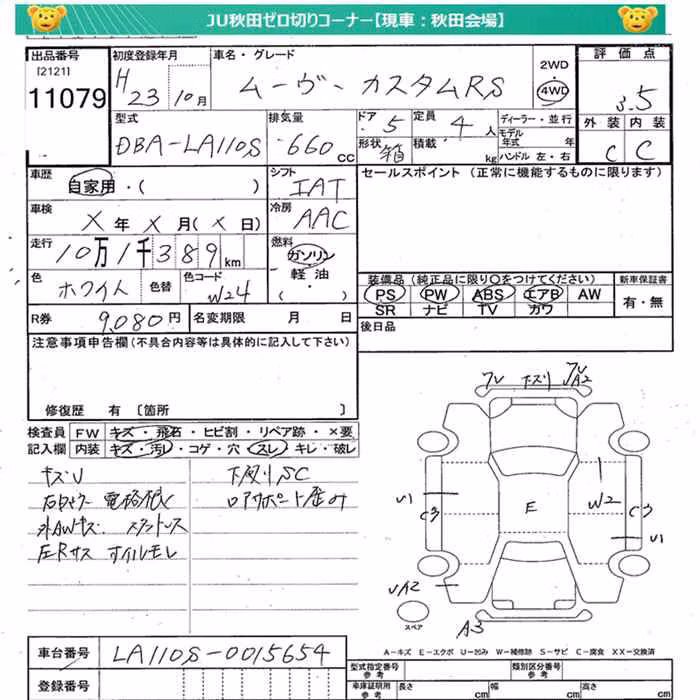 JU秋田ゼロ切りコーナー【現車：秋田会場】
出品番号 初度登録年月 車名・グレード 2WD・4WD 評価点
[2121]
11079 H23 10月 ムーヴ・カスタムRS 3.5
型式 排気量 ドア 5 定員 4人 ディーラー・並行 外装 内装
DBA-LA110S 660cc 形状 箱 積載 kg モデル年式 年 ハンドル 左・右 C C
車歴 自家用・( ) シフト IAT
セールスポイント（正常に機能するものに限ります）
車検 X年X月(X日) 冷房 AAC
走行 10万1千389km 燃料 ガソリン 軽油 ・( )
色 ホワイト 色替 色コード W24
装備品（純正品に限り○をつけてください） 新車保証書
PS PW ABS エアB AW 有・無
SR ナビ TV カワ
R券 9,080円 名変期限 月 日
後日品
注意事項申告欄（不具合内容等は具体的に記入して下さい）
修復歴 有 〔箇所 〕
検査員 FW キズ・飛石・ヒビ割・リペア跡・×要
記入欄 内装 キズ・汚レ・コゲ・穴・スレ・キレ・破レ
キズU 下廻りSC
電格 ロアサポート歪み
外AWキズ スタットレス
左Rサス オイルモレ
下スリ
A2
U1 E W2
C3 C3
U1
A2
スペア
A3
A－キズ E－エクボ U－凹み W－補修跡 S－サビ C－腐食 XX－交換済
車台番号 LA110S-0015654
登録番号
型式指定番号 参考 類別区分番号 参考
車庫証明用 参考 長さ cm 幅 cm 高さ cm